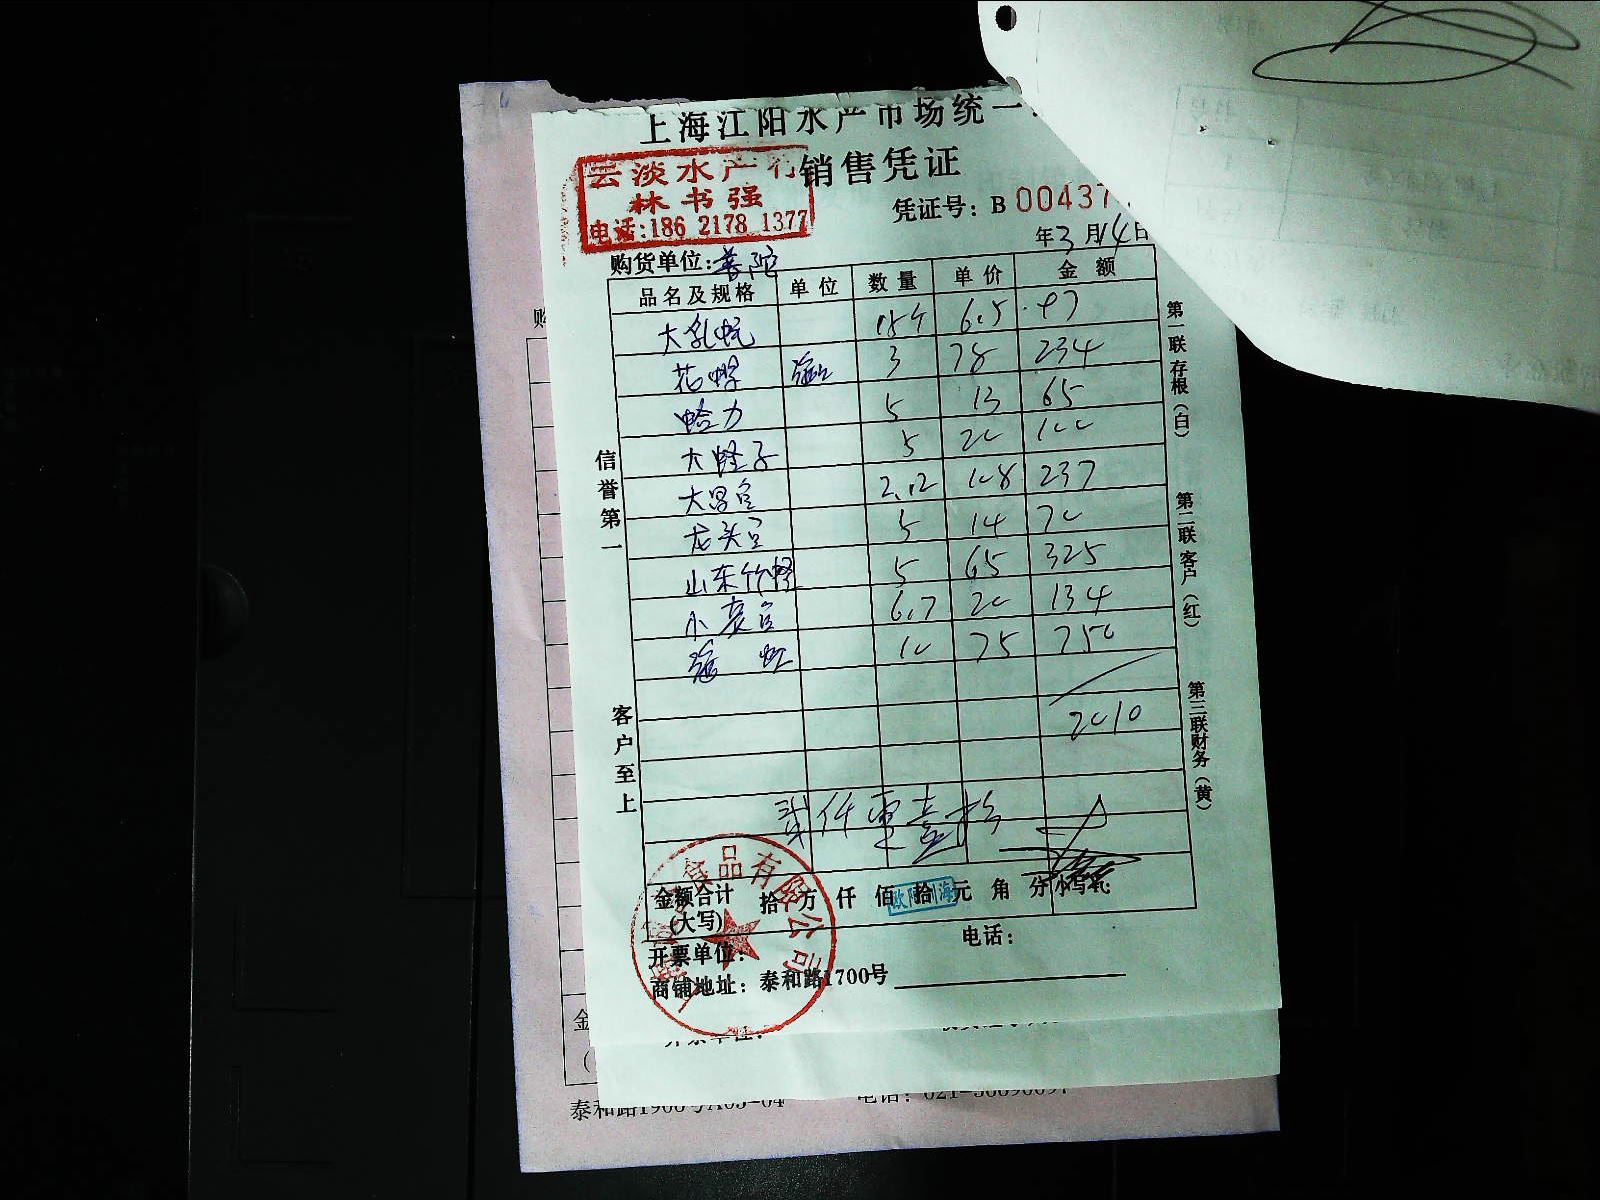 上海江阳水产市场统一
销售凭证
云淡水产行
林书强
电话:186 2178 1377
凭证号: B 00437
年3月14日
购货单位:普陀
品名及规格 单位 数量 单价 金额
大乳蚝 6.5 97
花蟹 3 78 234
哈力 5 13 65
大蛏子 5 20 100
2.12 108 237
龙头 5 14 70
山东竹蛏 5 65 325
小 6.7 20 134
10 75 750
2010
贰仟零壹拾
信誉第一
客户至上
第一联存根(白)
第二联客户(红)
第三联财务(黄)
金额合计
(大写) 拾 万 仟 佰 拾 元 角 分 小写¥:
食品有限公司
开票单位: 电话:
商铺地址: 泰和路1700号
购
金
(
开票单位:
泰和路1900号A05-04 电话: 021-